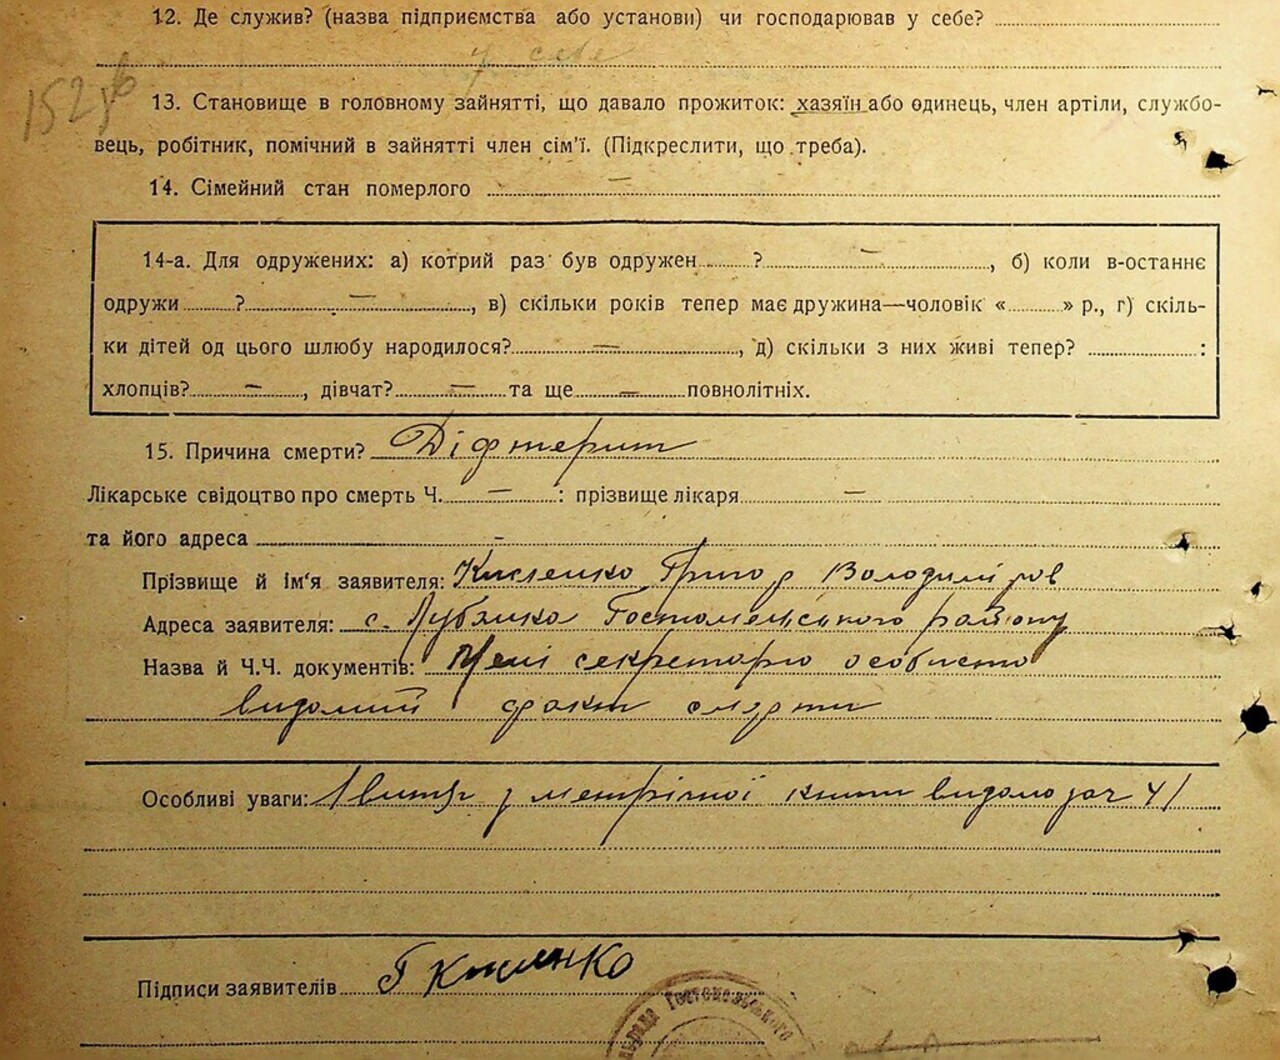 12. Де служив? (назва підприємства або установи) чи господарював у себе?
у себе
13. Становище в головному зайнятті, що давало прожиток: хазяїн або одинець, член артіли, службо-
вець, робітник, помічний в зайнятті член сім'ї. (Підкреслити, що треба).
14. Сімейний стан померлого —
14-а. Для одружених: а) котрий раз був одружен ? —, б) коли в-останнє
одружи ? —, в) скільки років тепер має дружина—чоловік « » р., г) скіль-
ки дітей од цього шлюбу народилося? —, д) скільки з них живі тепер? :
хлопців? —, дівчат? — та ще — повнолітніх.
15. Причина смерти? Діфтерит
Лікарське свідоцтво про смерть Ч. — : прізвище лікаря —
та його адреса -
Прізвище й ім'я заявителя: Кисленко Григор Володиміров
Адреса заявителя: с. Лубянка Гостомельського району
Назва й Ч.Ч. документів: Мені секретарю особисто
видомий факт смерти
Особливі уваги: витяг з метрічної книги видано
Підписи заявителів Г Кисленко
Гостомельського